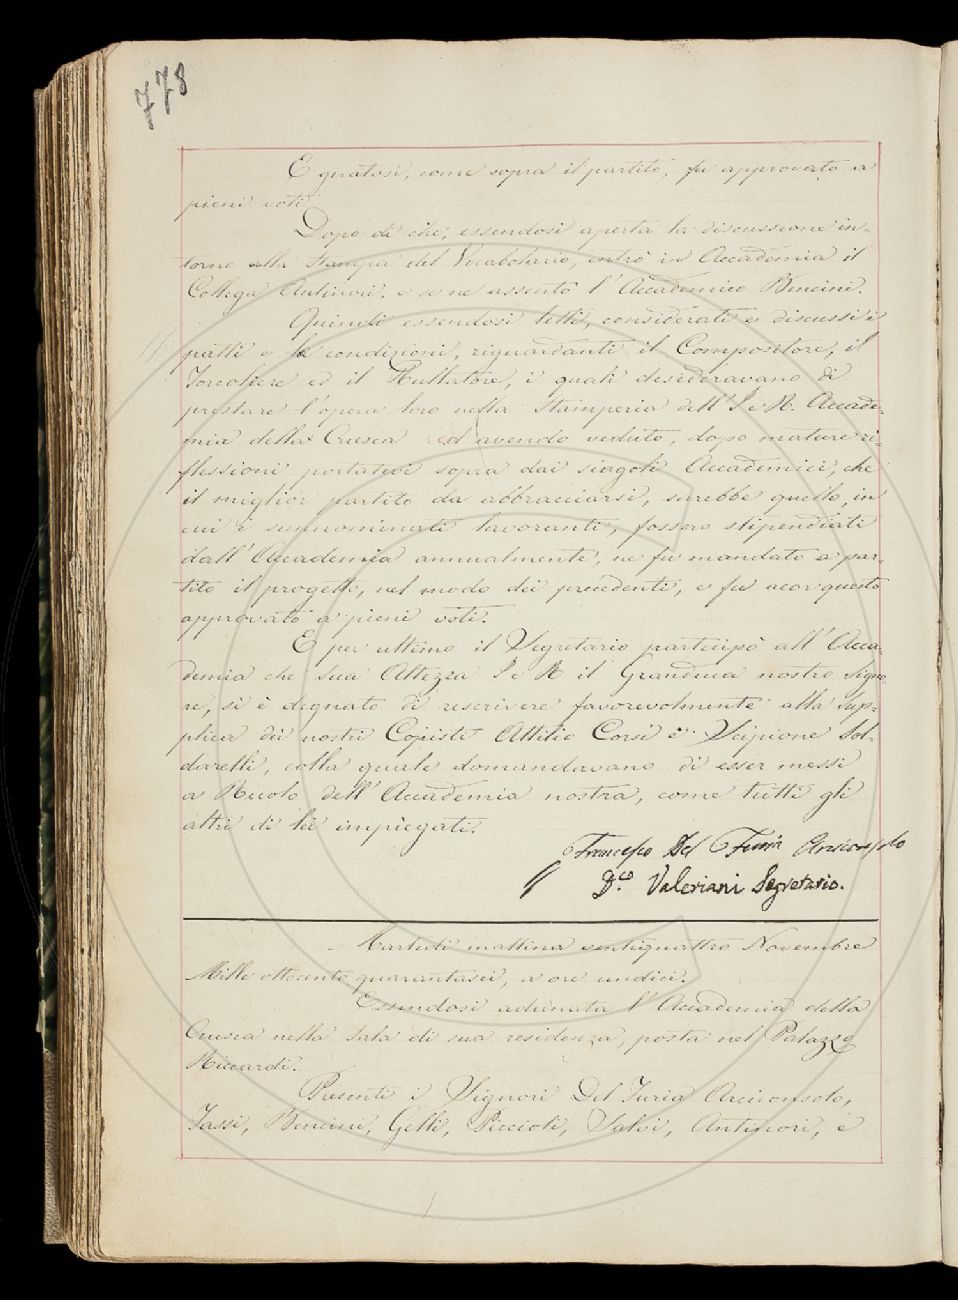 778
E giratosi, come sopra il partito, fu approvato a
pieni voti.
Dopo di che, essendosi aperta la discussione in-
torno alla stampa del Vocabolario, entrò in Accademia il
Collega Antinori, e se ne assentò l'Accademico Bencini.
Quindi essendosi letti, considerati e discussi i
patti e le condizioni, riguardanti il Compositore, il
Torcoliere ed il Battitore, i quali desideravano di
prestare l'opera loro nella Stamperia dell'I e R. Accade-
mia della Crusca ed avendo veduto, dopo mature ri-
flessioni portatevi sopra dai singoli Accademici, che
il miglior partito da abbracciarsi, sarebbe quello, in
cui i sunnominati lavoranti, fossero stipendiati
dall'Accademia annualmente, ne fu mandato a par-
tito il progetto, nel modo dei precedenti, e fu ancor questo
approvato a pieni voti.
E per ultimo il Segretario partecipò all'Acca-
demia che Sua Altezza I e R il Granduca nostro Signo-
re, si è degnato di rescrivere favorevolmente alla sup-
plica dei nostri Copisti Attilio Corsi e Scipione Sol-
darelli, colla quale domandavano di esser messi
a Ruolo dell'Accademia nostra, come tutti gli
altri di lei impiegati.
Francesco Del Furia Arciconsolo
D.co Valeriani Segretario.
Martedì mattina ventiquattro Novembre
Mille ottocento quarantasei, a ore undici.
Essendosi adunata l'Accademia della
Crusca nella Sala di sua residenza, posta nel Palazzo
Riccardi.
Presenti i Signori Del Furia Arciconsolo,
Tassi, Bencini, Gelli, Piccioli, Salvi, Antinori, e